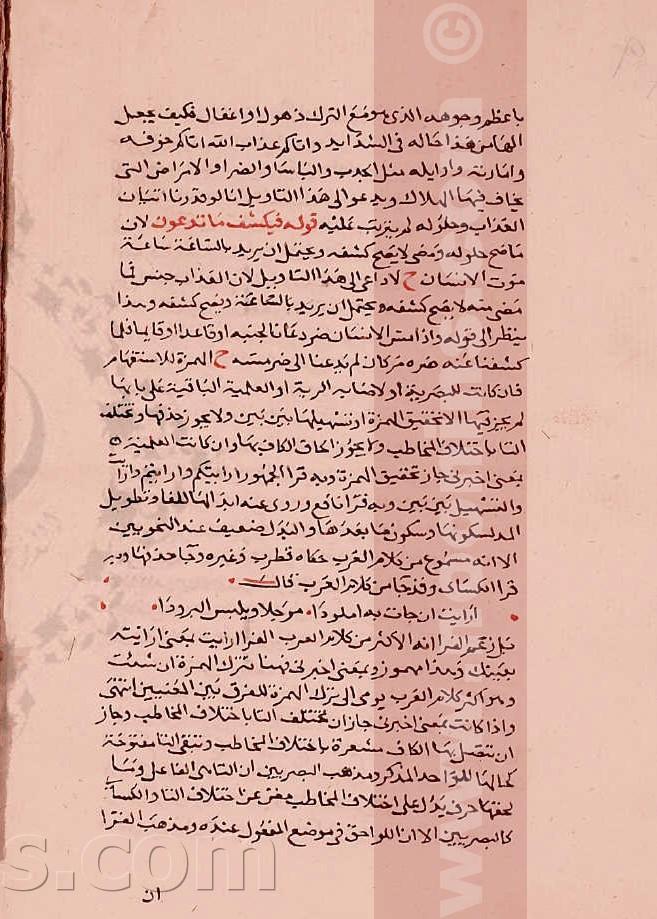 باعظم وجوهه الذى هو مع الترك ذهول او اغفال فكيف يجعل
الها من هذا حاله فى الشدايد واتاكم عذاب الله اتاكم خوفه
واماراته واوايله مثل الجدب والباسا والضرا والامراض التى
يخاف فيها الهلاك ويدعو الى هذا التاويل انا لو قدرنا اتيان
العذاب وحلوله لم يترتب عليه قوله فيكشف ما تدعون لان
ما صح حلوله ومضى لا يصح كشفه ويحتمل ان يريد بالساعة ساعة
موت الانسان ح لا داعى الى هذا التاويل لان العذاب جنس فما
مضى منه لا يصح كشفه ويحتمل ان يريد بالساعة ويصح كشفه وهذا
ينظر الى قوله واذا مس الانسان ضر دعانا لجنبه او قاعدا او قايما فلما
كشفنا عنه ضره مر كان لم يدعنا الى ضر مسه ح الهمزة للاستفهام
فان كانت للبصرية او لاصابه الرية او العلمية الباقية على بابها
لم يجز فيها الا تحقيق الهمزة او تسهيلها بين بين ولا يجوز حذفها وتختلف
التا باختلاف المخاطب ولا يجوز الحاق الكاف بها وان كانت العلمية
بمعنى اخبرنى جاز تحقيق الهمزة وبه قرا الجمهور ارايتكم وارايتم وارايت
والتسهيل بين بين وبه قرا نافع وروى عنه ابدالها الفا وتطويل
المد لسكونها وسكون ما بعدها والبدل ضعيف عند النحويين
الا انه مسموع من كلام العرب حكاه قطرب وغيره وجا حذفها وبه
قرا الكساى وقد جا من كلام العرب قال
اريت ان جات به املودا مرجلا ويلبس البرودا
بل زعم الفرا انه الاكثر من كلام العرب الفرا ارايت بمعنى ارايته
بعينك وهذا مهموز وبمعنى اخبرنى فهنا تترك الهمزة ان شئت
وهو اكثر كلام العرب يومى الى ترك الهمزة للفرق بين المعنيين انتهى
واذا كانت بمعنى اخبرنى جاز ان تختلف التا باختلاف المخاطب وجاز
ان تتصل بها الكاف مشعرة باختلاف المخاطب وتبقى التا مفتوحة
كحالها للواحد المذكر ومذهب البصريين ان التا هى الفاعل وما
لحقها حرف يدل على اختلاف المخاطب مغن عن اختلاف التا والكساى
كالبصريين الا ان اللواحق فى موضع المفعول عنده ومذهب الفرا
ان